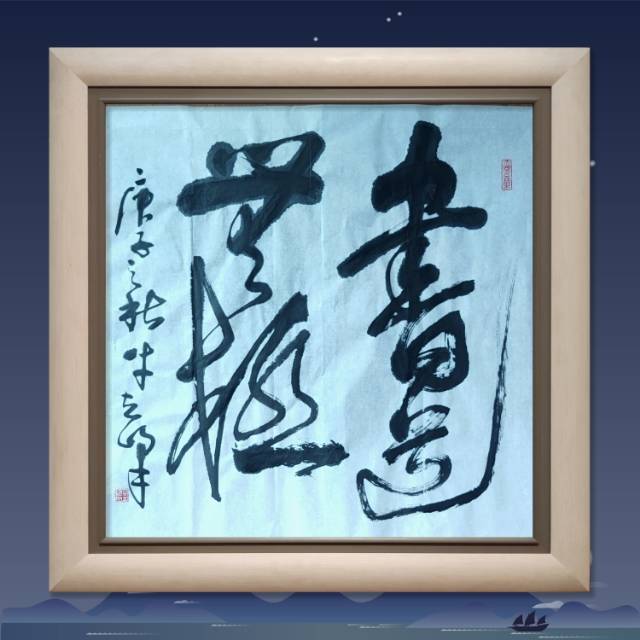 書道
無極
庚子之秋牛